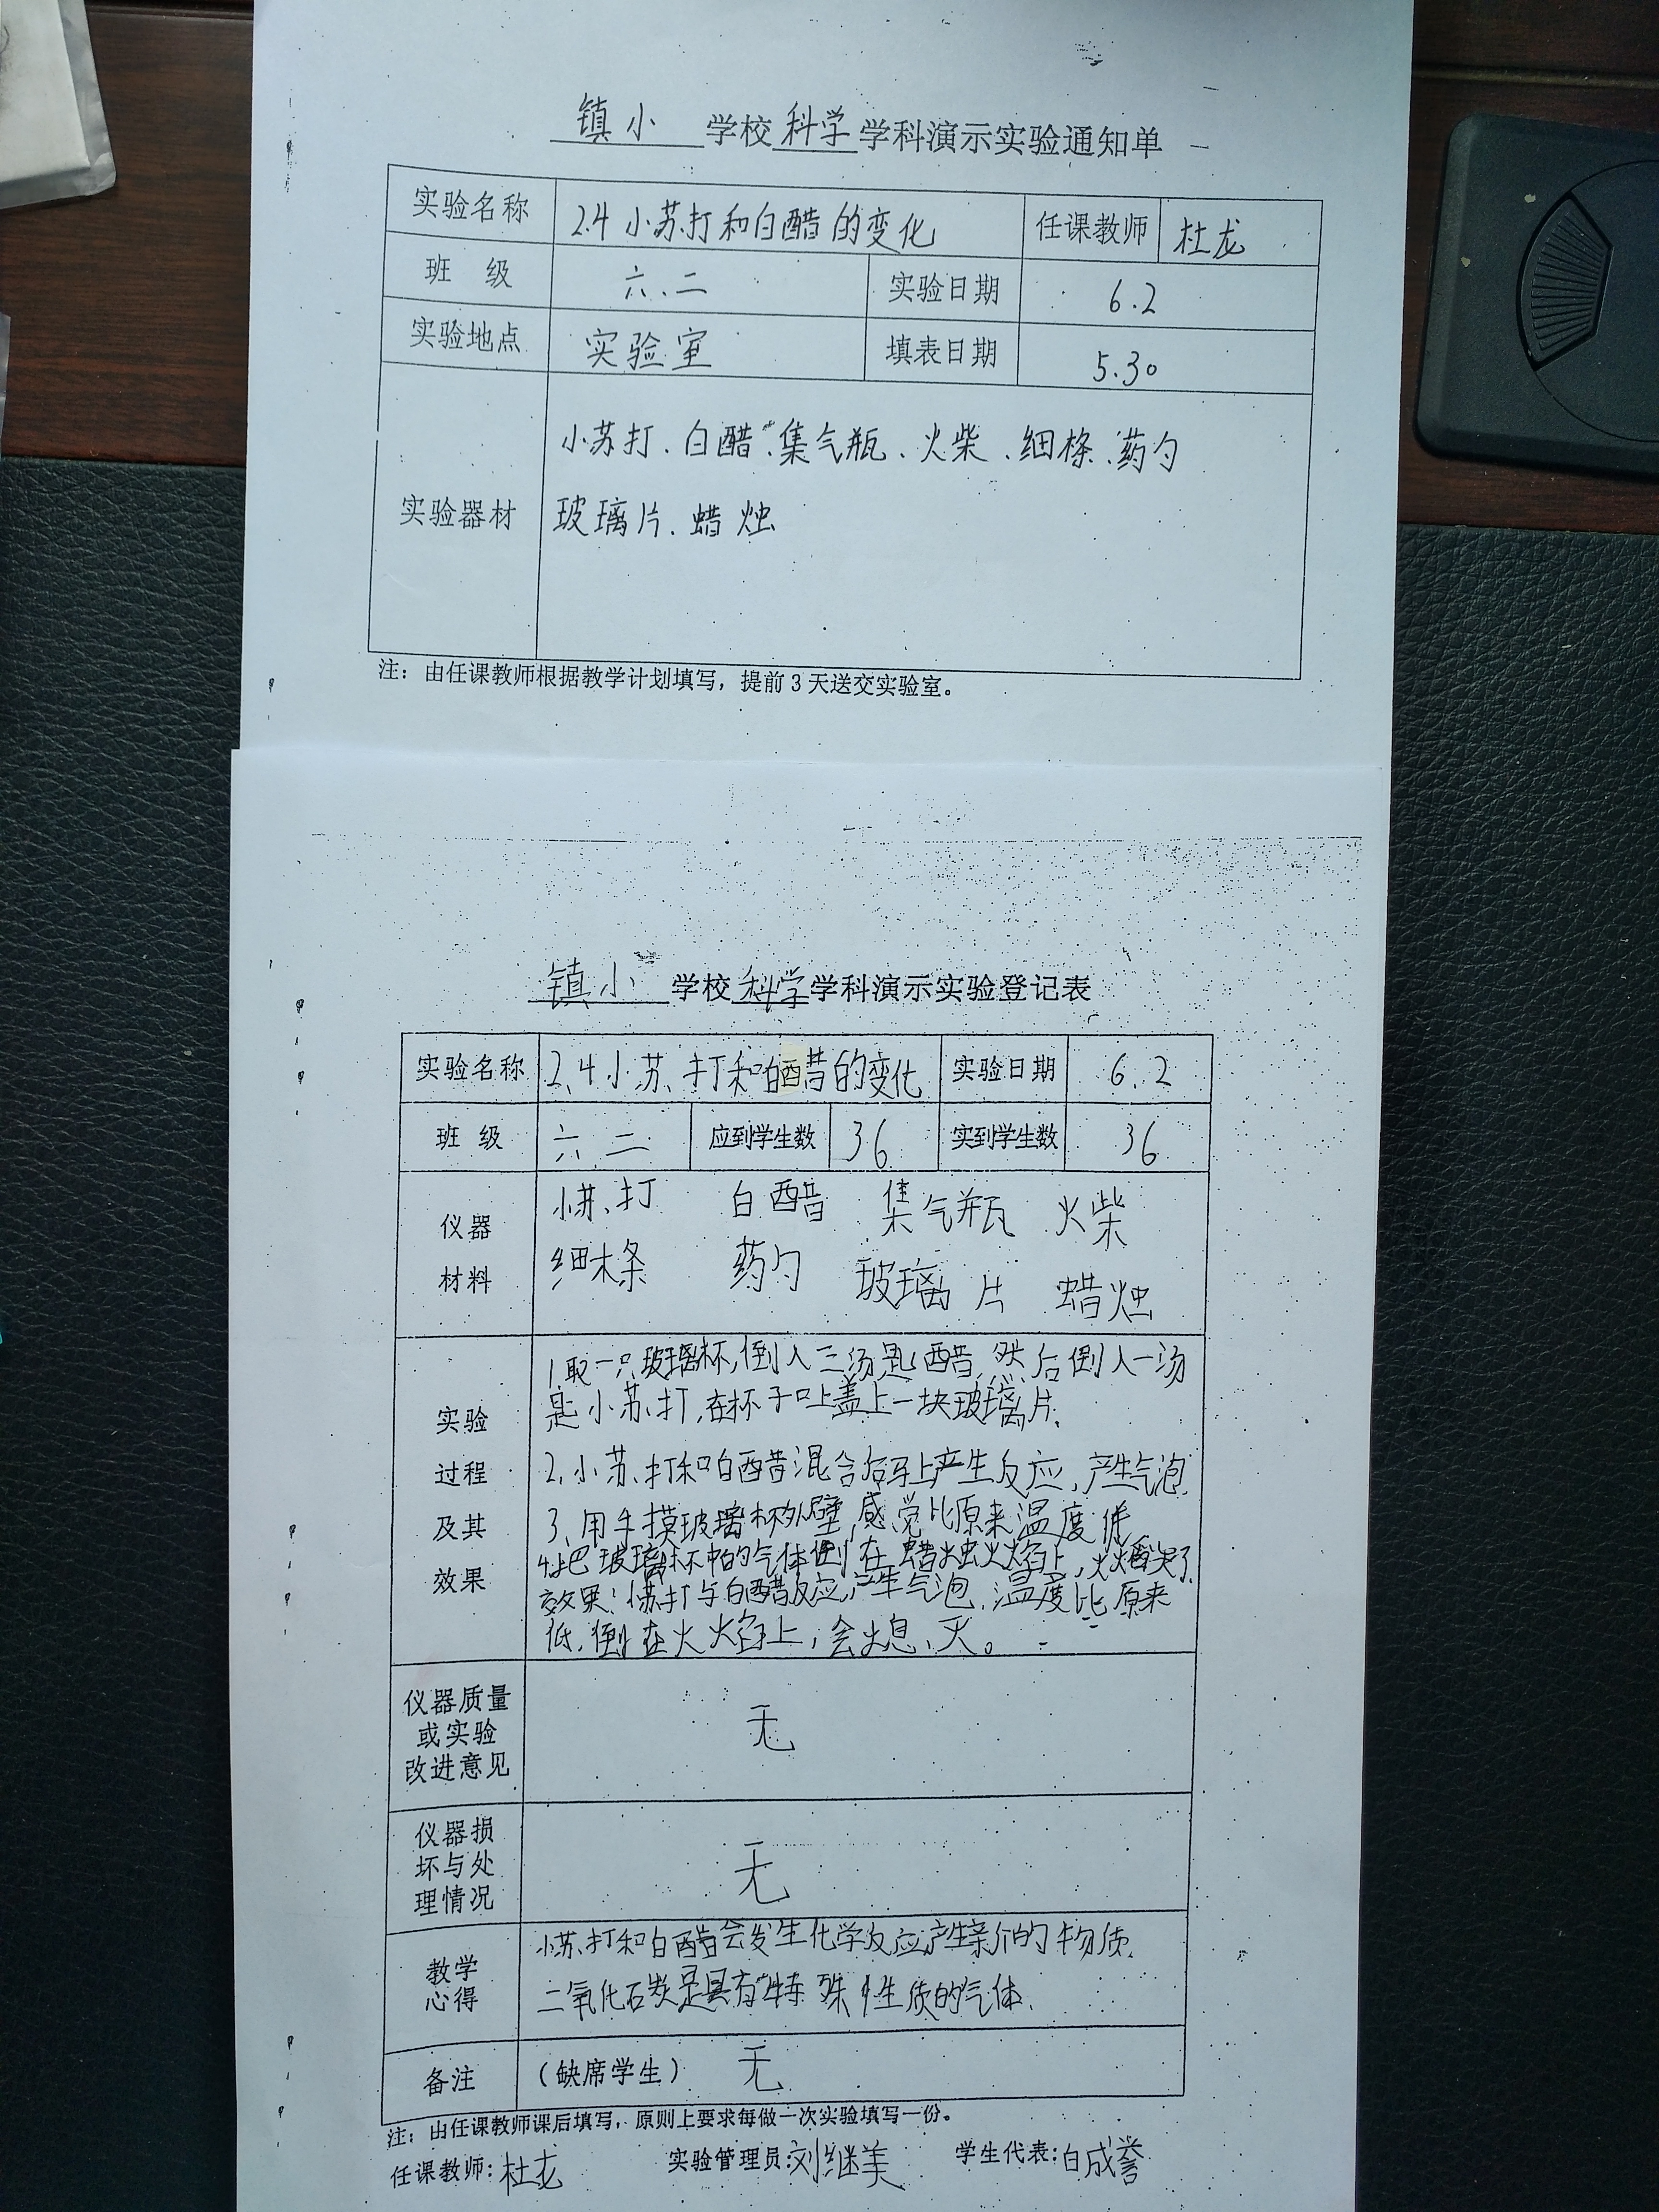 镇小 学校 科学 学科演示实验通知单
实验名称 2.4 小苏打和白醋的变化 任课教师 杜龙
班 级 六.二 实验日期 6.2
实验地点 实验室 填表日期 5.30
小苏打、白醋、集气瓶、火柴、细条、药勺
实验器材 玻璃片、蜡烛
注：由任课教师根据教学计划填写，提前3天送交实验室。
镇小 学校 科学 学科演示实验登记表
实验名称 2.4小苏打和白醋的变化 实验日期 6.2
班 级 六.二 应到学生数 36 实到学生数 36
仪器 小苏打 白醋 集气瓶 火柴
材料 细木条 药勺 玻璃片 蜡烛
实验
过程
及其
效果
1.取一只玻璃杯,倒入三汤匙醋,然后倒入一汤
匙小苏打,在杯子口上盖上一块玻璃片.
2.小苏打和白醋混合后马上产生反应,产生气泡.
3.用手摸玻璃杯外壁,感觉比原来温度低
4.把玻璃杯中的气体倒在蜡烛火焰上,火焰
效果:小苏打与白醋反应,产生气泡.温度比原来
低.倒在火焰上,会熄灭。
仪器质量
或实验
改进意见
无
仪器损
坏与处
理情况
无
教学
心得
小苏打和白醋会发生化学反应,产生新的物质.
二氧化碳是具有特殊性质的气体.
备注 （缺席学生） 无
注：由任课教师课后填写，原则上要求每做一次实验填写一份。
任课教师:杜龙 实验管理员:刘继美 学生代表:白成誉